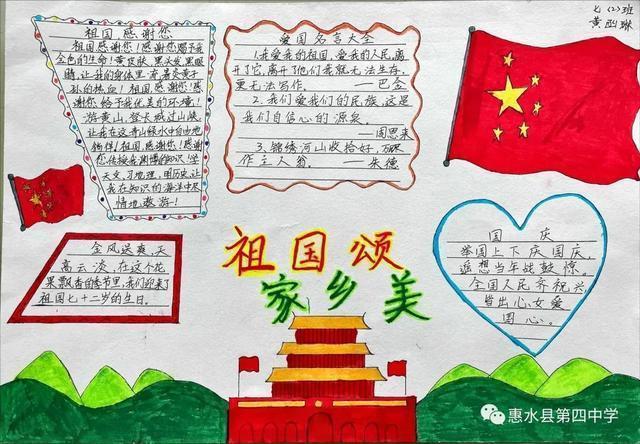 七(2)班
祖国感谢您
祖国感谢您!感谢您赐予我
金色的生命!黄皮肤,黑头发,黑眼
睛,让我的身体里流着炎黄子
孙的热血!祖国,感谢您!感
谢您给予我优美的环境!
游黄山,登长城过山峡,
让我在这青山绿水中自由地
徜徉!祖国,感谢您!感谢
您传授我渊博的知识!学
天文,习地理,明历史,让
我在知识的海洋中尽
情地遨游!
爱国名言大全
1.我爱我的祖国,爱我的人民,离
开了它,离开了他们,我就无法生存,
更无法写作。——巴金
2.我们爱我们的民族,这是
我们自信心的源泉。
——周恩来
3.锦绣河山收拾好,万众
作主人翁。——朱德
金风送爽,天
高云淡,在这个花
果飘香的季节里,我们迎来了
祖国七十二岁的生日。
祖国颂
家乡美
国庆
举国上下庆国庆,
遥想当年战鼓擂。
全国人民齐祝兴,
皆出心女爱
国心。
惠水县第四中学